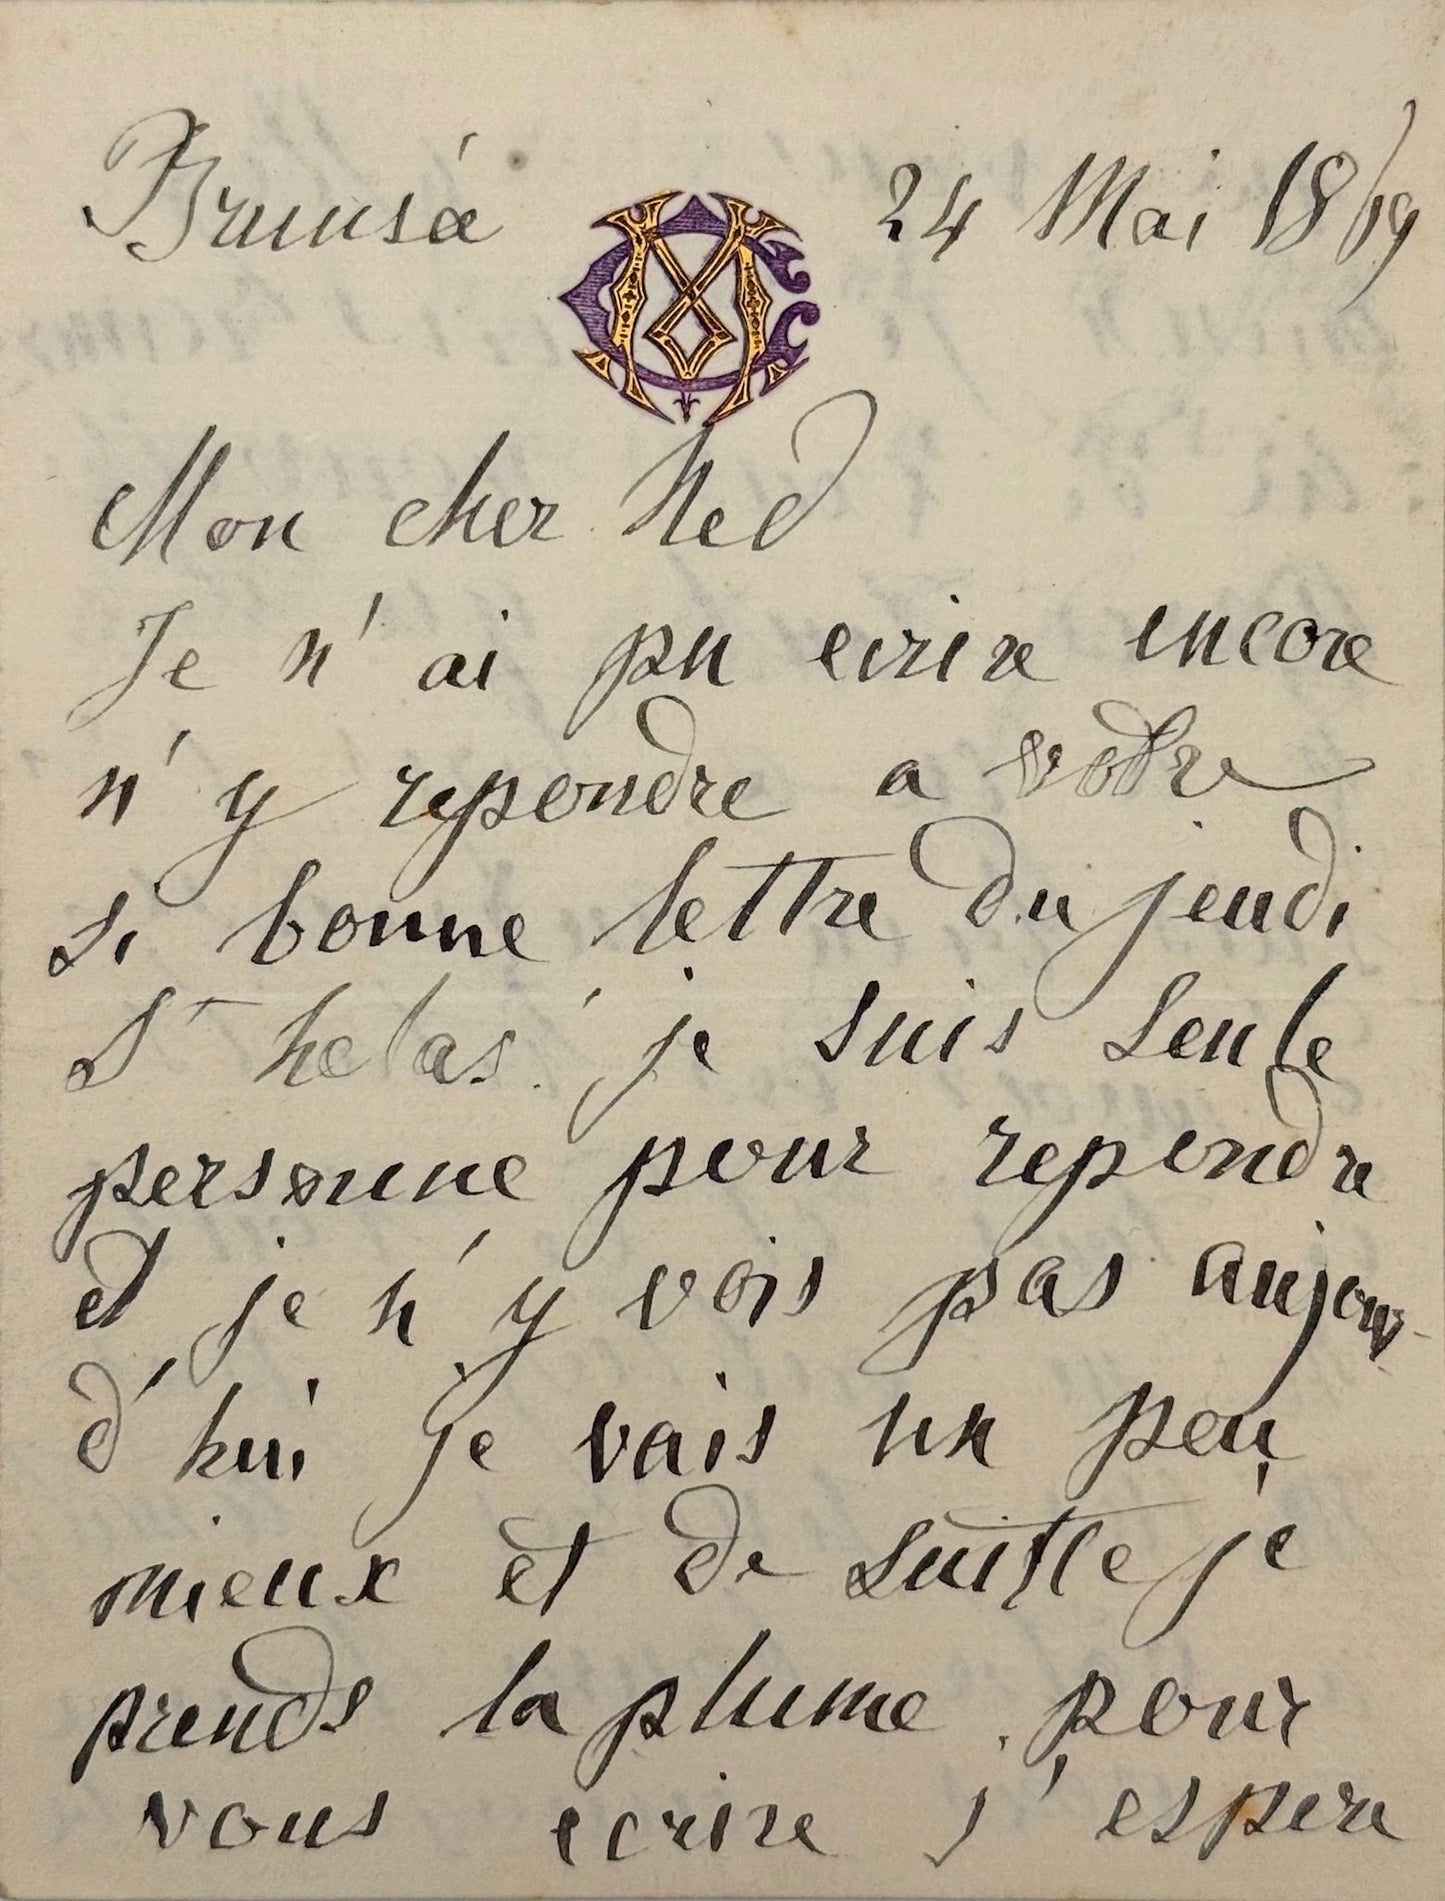 Brousá 24 Mai
Mon cher Ned
Je n'ai pu ecrire encore
n'y repondre a votre
si bonne lettre du jeudi
St helas! je suis seule
personne pour repondre
et je n'y vois pas aujour-
d'hui je vais un peu
mieux et de suitte je
prends la plume pour
vous ecrire j'espere